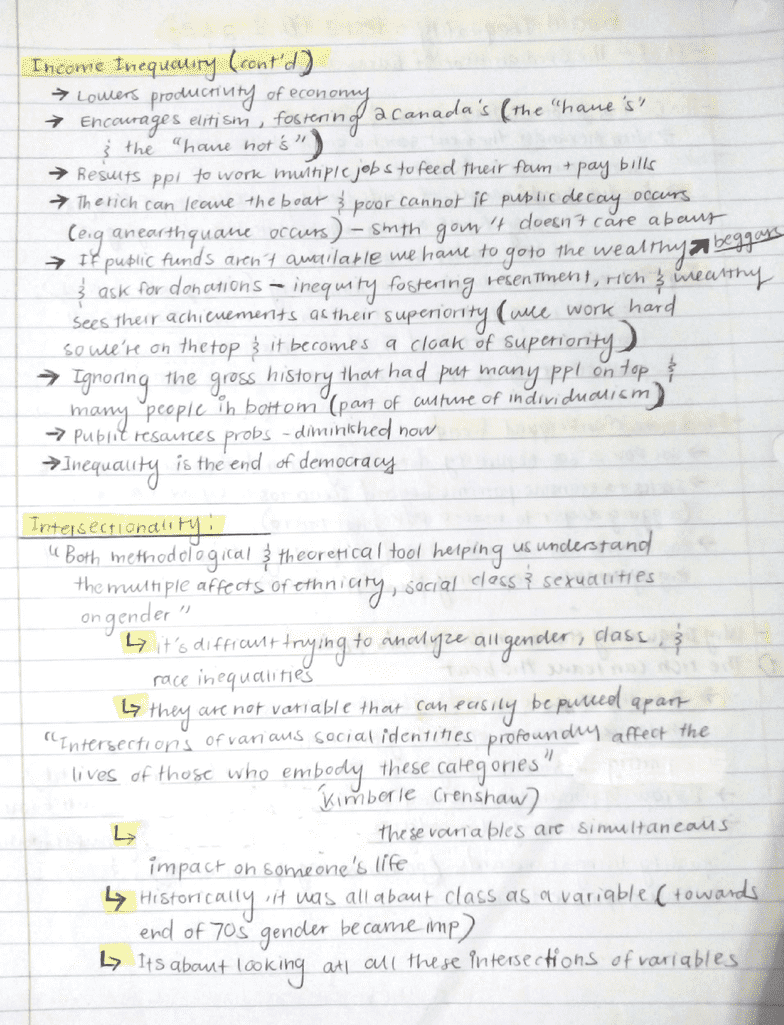 Income Inequality (cont'd)
→ Lowers productivity of economy
→ Encourages elitism, fostering 2 Canada's (the "have's"
& the "have not's")
→ Results ppl to work multiple jobs to feed their fam + pay bills
→ The rich can leave the boat & poor cannot if public decay occurs
(e.g an earthquake occurs) – smth gov't doesn't care about
→ If public funds aren't available we have to go to the wealthy ↗ beggars
& ask for donations – inequity fostering resentment, rich & wealthy
sees their achievements as their superiority (we work hard
so we're on the top & it becomes a cloak of superiority)
→ Ignoring the gross history that had put many ppl on top &
many people in bottom (part of culture of individualism)
→ Public resources probs – diminished now
→ Inequality is the end of democracy
Intersectionality:
"Both methodological & theoretical tool helping us understand
the multiple affects of ethnicity, social class & sexualities
on gender"
↳ it's difficult trying to analyze all gender, class, &
race inequalities
↳ they are not variable that can easily be pulled apart
"Intersections of various social identities profoundly affect the
lives of those who embody these categories"
(Kimberle Crenshaw)
↳ these variables are simultaneous
impact on someone's life
↳ Historically, it was all about class as a variable (towards
end of 70s gender became imp)
↳ Its about looking at all these intersections of variables